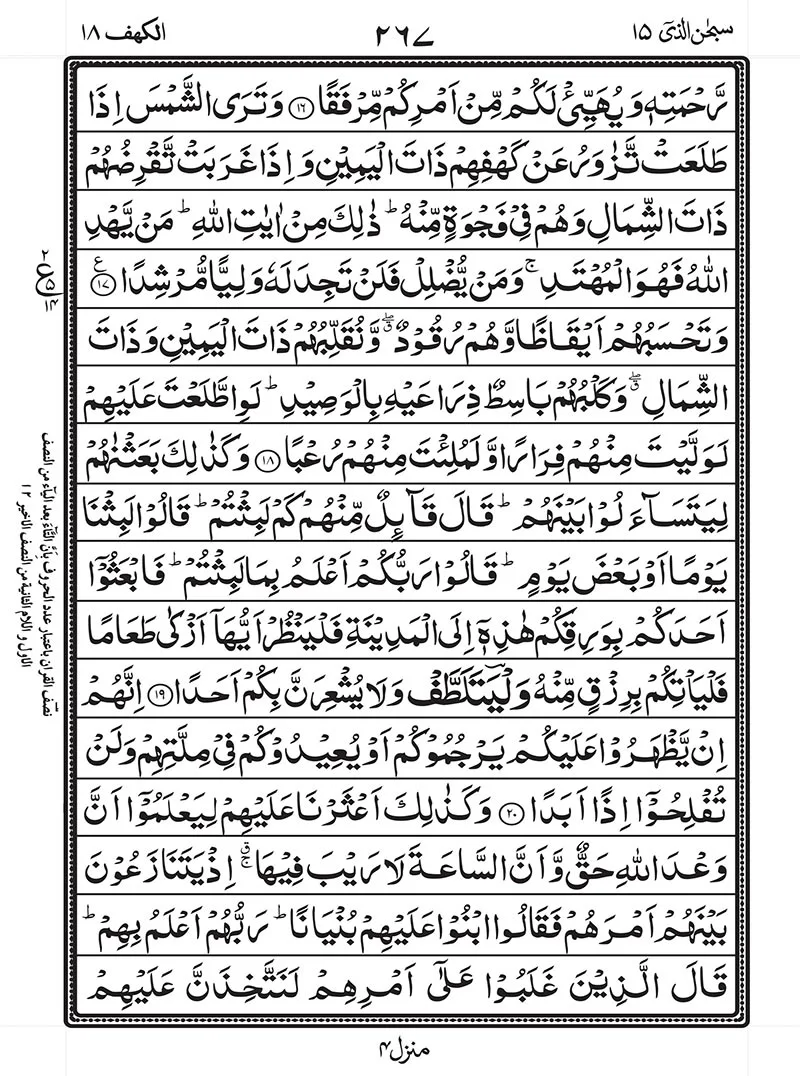 سبحٰن الذیٓ ۱۵
۲۶۷
الکهف ۱۸
رَّحْمَتِهٖ وَیُهَیِّئْ لَكُمْ مِّنْ اَمْرِكُمْ مِّرْفَقًا ﴿۱۶﴾ وَتَرَی الشَّمْسَ اِذَا
طَلَعَتْ تَّزٰوَرُ عَنْ كَهْفِهِمْ ذَاتَ الْیَمِیْنِ وَاِذَا غَرَبَتْ تَّقْرِضُهُمْ
ذَاتَ الشِّمَالِ وَهُمْ فِیْ فَجْوَةٍ مِّنْهُ ؕ ذٰلِكَ مِنْ اٰیٰتِ اللّٰهِ ؕ مَنْ یَّهْدِ
اللّٰهُ فَهُوَ الْمُهْتَدِ ۚ وَمَنْ یُّضْلِلْ فَلَنْ تَجِدَ لَهٗ وَلِیًّا مُّرْشِدًا ﴿۱۷﴾ ع
وَتَحْسَبُهُمْ اَیْقَاظًا وَّهُمْ رُقُوْدٌ ۖۗ وَّنُقَلِّبُهُمْ ذَاتَ الْیَمِیْنِ وَذَاتَ
الشِّمَالِ ۖۗ وَكَلْبُهُمْ بَاسِطٌ ذِرَاعَیْهِ بِالْوَصِیْدِ ؕ لَوِ اطَّلَعْتَ عَلَیْهِمْ
لَوَلَّیْتَ مِنْهُمْ فِرَارًا وَّلَمُلِئْتَ مِنْهُمْ رُعْبًا ﴿۱۸﴾ وَكَذٰلِكَ بَعَثْنٰهُمْ
لِیَتَسَآءَلُوْا بَیْنَهُمْ ؕ قَالَ قَآىِٕلٌ مِّنْهُمْ كَمْ لَبِثْتُمْ ؕ قَالُوْا لَبِثْنَا
یَوْمًا اَوْ بَعْضَ یَوْمٍ ؕ قَالُوْا رَبُّكُمْ اَعْلَمُ بِمَا لَبِثْتُمْ ؕ فَابْعَثُوْۤا
اَحَدَكُمْ بِوَرِقِكُمْ هٰذِهٖۤ اِلَی الْمَدِیْنَةِ فَلْیَنْظُرْ اَیُّهَاۤ اَزْكٰی طَعَامًا
فَلْیَاْتِكُمْ بِرِزْقٍ مِّنْهُ وَلْیَتَلَطَّفْ وَلَا یُشْعِرَنَّ بِكُمْ اَحَدًا ﴿۱۹﴾ اِنَّهُمْ
اِنْ یَّظْهَرُوْا عَلَیْكُمْ یَرْجُمُوْكُمْ اَوْ یُعِیْدُوْكُمْ فِیْ مِلَّتِهِمْ وَلَنْ
تُفْلِحُوْۤا اِذًا اَبَدًا ﴿۲۰﴾ وَكَذٰلِكَ اَعْثَرْنَا عَلَیْهِمْ لِیَعْلَمُوْۤا اَنَّ
وَعْدَ اللّٰهِ حَقٌّ وَّاَنَّ السَّاعَةَ لَا رَیْبَ فِیْهَا ۚۗ اِذْ یَتَنَازَعُوْنَ
بَیْنَهُمْ اَمْرَهُمْ فَقَالُوا ابْنُوْا عَلَیْهِمْ بُنْیَانًا ؕ رَبُّهُمْ اَعْلَمُ بِهِمْ ؕ
قَالَ الَّذِیْنَ غَلَبُوْا عَلٰۤی اَمْرِهِمْ لَنَتَّخِذَنَّ عَلَیْهِمْ
منزل ۴
۲ ع ۵ ۱۴
نصف القرآن باعتبار عدد الحروف بأن التاء بعد الیاء من النصف
الاول و اللام الثانیة من النصف الاخیر ۱۲